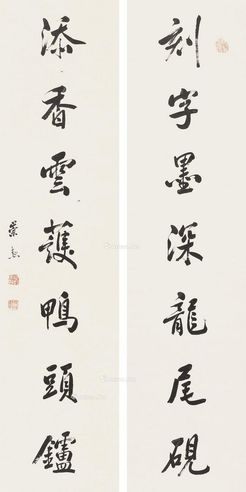 刻字墨深龍尾硯
添香雲護鴨頭鑪